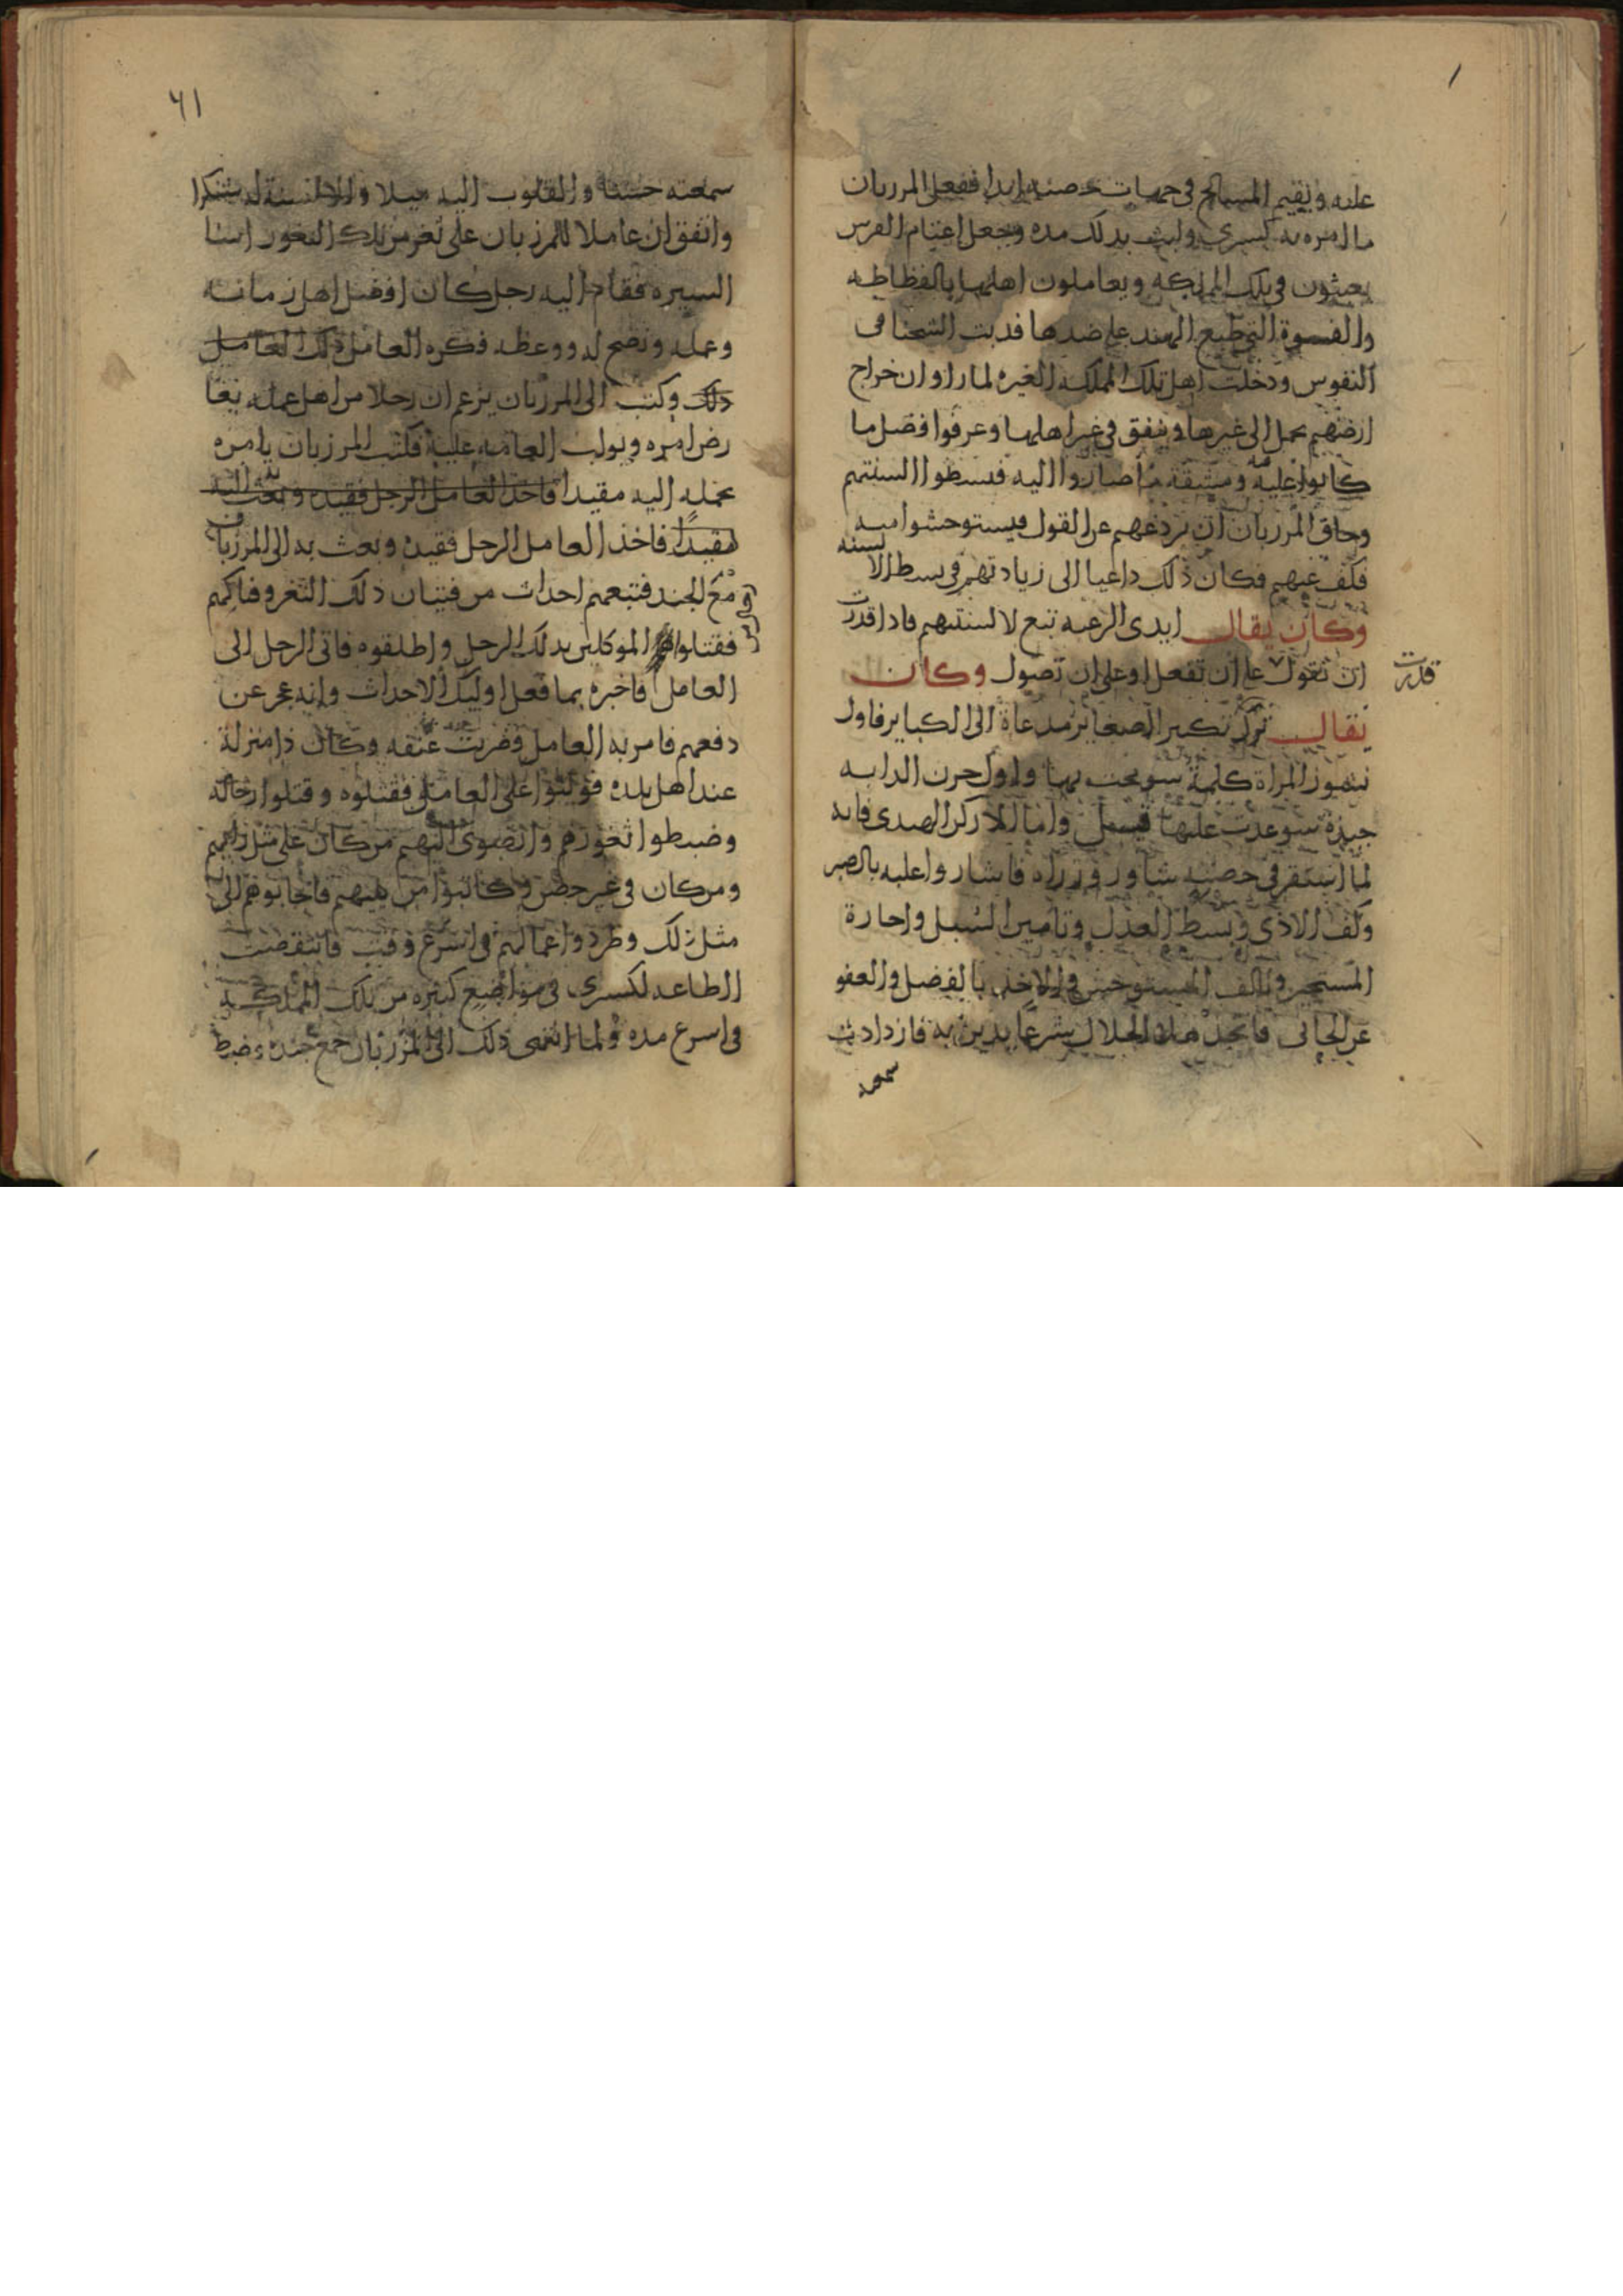 عليه ويقيم المسالح في جهات حصنه ابدا ففعل المرزبان
ما امره به كسرى ولبث بذلك مده وجعل اغتام الفرس
يعيثون في تلك المملكه ويعاملون اهلها بالفظاظه
والقسوة التي طبع الهند على ضدها فدبت الشحنا في
النفوس ودخلت اهل تلك المملكة الغيره لما راوا ان خراج
ارضهم يحمل الى غيرها وينفق في غير اهلها وعرفوا فضل ما
كانوا عليه ومشقة ما صاروا اليه فبسطوا السنتهم
وخاف المرزبان ان يردعهم عن القول فيستوحشوا منه
فكف عنهم فكان ذلك داعيا الى زيادتهم في بسط الالسنه
وكان يقال ايدي الرعيه تبع لالسنتهم فاذا قدرت
ان تقول على ان تفعل او على ان تصول وكان
قدرت
يقال ترك نكير الصغاير مدعاة الى الكباير فاول
نشوز المراة كلمة سومحت بها واول حرن الدابه
حيدة سوعدت عليها قيل واما الاركن الهندي فانه
لما استقر في حصنه شاور وزراه فاشاروا عليه بالصبر
وكف الاذى وبسط العدل وتامين السبل واجارة
المستجير وتالف المستوحش والاخذ بالفضل والعفو
عن الجاني فاتخذ هذه الخلال شرعا يدين به فازدادت
سمعته
٦١
سمعته حسنا والقلوب اليه ميلا والالسنة له شكرا
واتفق ان عاملا للمرزبان على ثغر من تلك الثغور اسا
السيره فقام اليه رجل كان افضل اهل زمانه
وعمله ونصح له ووعظه فكره العامل ذلك العامل
ذلك وكتب الى المرزبان يزعم ان رجلا من اهل عمله يعا
رض امره ويولب العامه عليه فكتب المرزبان يامره
بحمله اليه مقيدا فاخذ العامل الرجل فقيده وبعث به اليه
مقيدا فاخذ العامل الرجل فقيده وبعث به الى المرزبان
مع الجند فتبعهم احداث من فتيان ذلك الثغر وفاكهم
فقتلوا الموكلين بذلك الرجل واطلقوه فاتى الرجل الى
العامل فاخبره بما فعل اوليك الاحداث وانه عجز عن
دفعهم فامر به العامل وضربت عنقه وكان ذا منزلة
عند اهل بلده فوثبوا على العامل فقتلوه وقتلوا رجاله
وضبطوا ثغورهم وانضوى اليهم من كان على مثل رايهم
ومن كان في غير حصن وكاتبوا من يليهم فاجابوهم الى
مثل ذلك وطردوا عمالهم في اسرع وقت فانتقضت
الطاعه لكسرى في مواضع كثيره من تلك المملكه
في اسرع مده ولما انتهى ذلك الى المرزبان جمع جنده وضبط